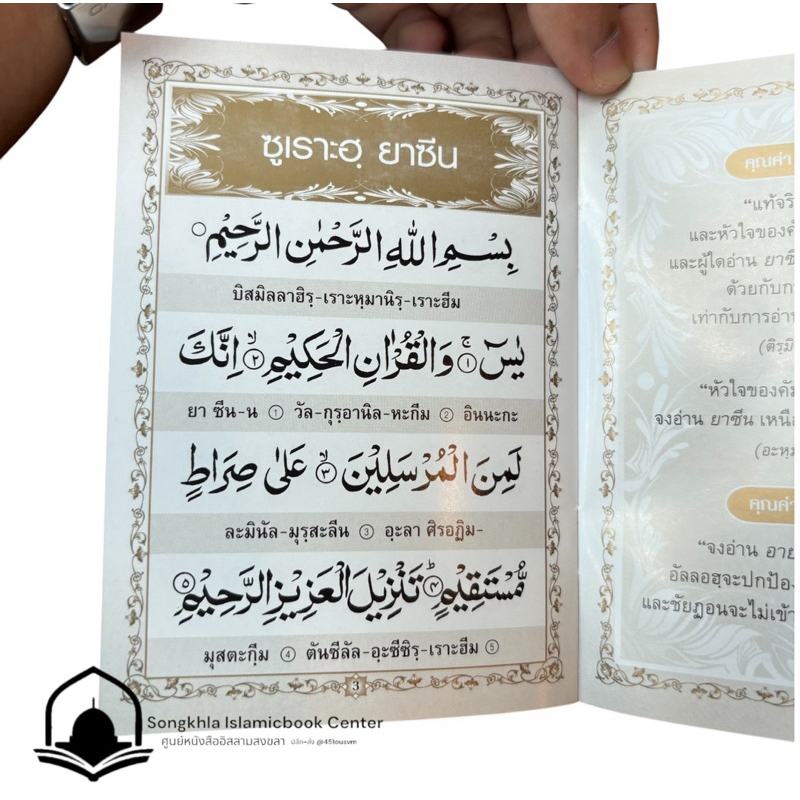 ซูเราะฮฺ ยาซีน
بِسْمِ اللهِ الرَّحْمٰنِ الرَّحِيْمِ
บิสมิลลาฮิรฺ-เราะหฺมานิรฺ-เราะฮีม
يٰسٓ ۚ ① وَالْقُرْاٰنِ الْحَكِيْمِ ۙ ② اِنَّكَ
ยา ซีน-น ① วัล-กุรฺอานิล-หะกีม ② อินนะกะ
لَمِنَ الْمُرْسَلِيْنَ ۙ ③ عَلٰى صِرَاطٍ
ละมินัล-มุรฺสะลีน ③ อฺะลา ศิรอฏิม-
مُّسْتَقِيْمٍ ؕ ④ تَنْزِيْلَ الْعَزِيْزِ الرَّحِيْمِ ⑤
มุสตะกีฺม ④ ตันซีลัล-อฺะซีซิรฺ-เราะฮีม ⑤
3
คุณค่า
“แท้จริ
และหัวใจของคั
และผู้ใดอ่าน ยาซี
ด้วยกับกา
เท่ากับการอ่าน
(ติรฺมิ
“หัวใจของคัม
จงอ่าน ยาซีน เหนือ
(อะหฺม
คุณค่า
“จงอ่าน อาย
อัลลอฮฺจะปกป้อง
และชัยฏอนจะไม่เข้า
Songkhla Islamicbook Center
ศูนย์หนังสืออิสลามสงขลา ปลีก-ส่ง